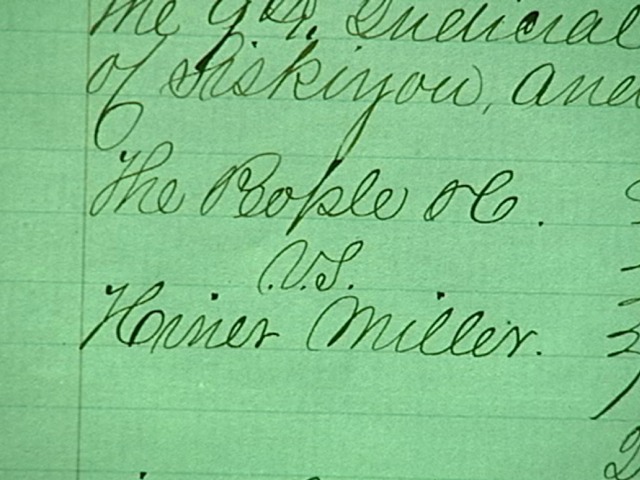 the 9th. Judicial
of Siskiyou, and
The People &C.
V.S.
Hiner Miller.